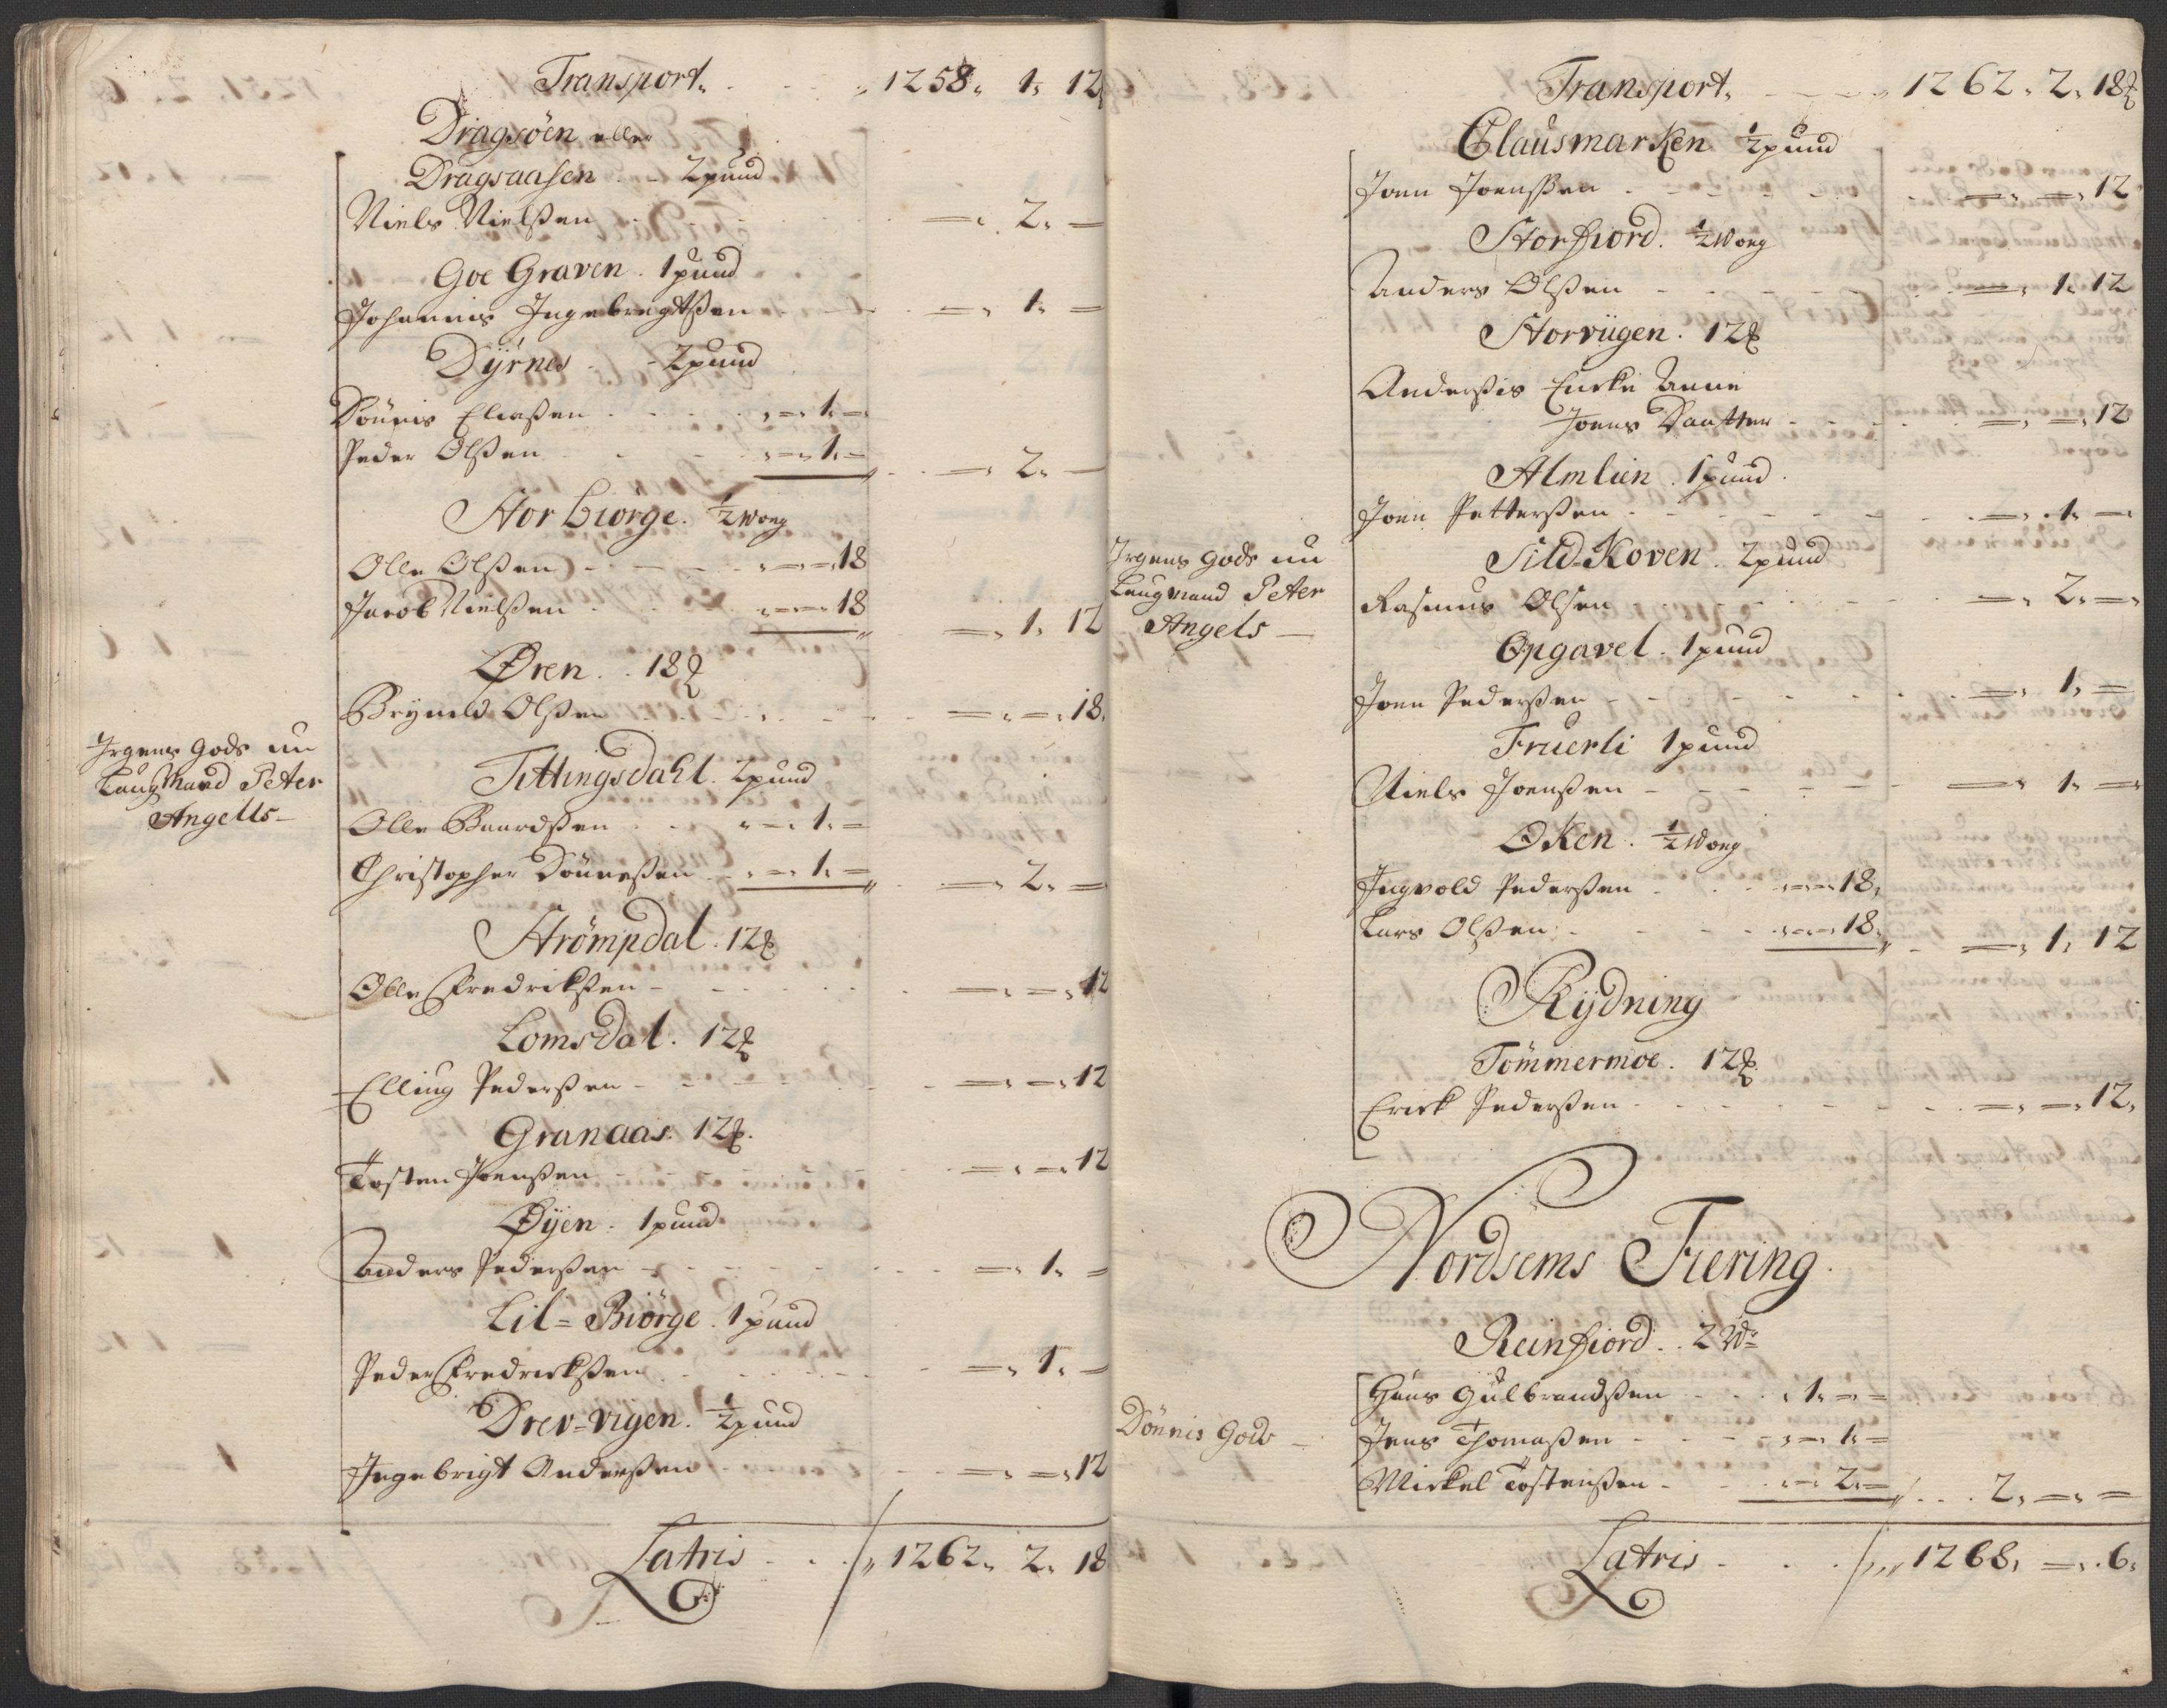 Transport. 1258. 1. 12
Dragsöen eller
Dragsaasen - 2pund
Niels Nielsßen =. 2. =
Goe Graven. 1pund
Johannis Ingebregtßen =. 1. =
Dÿrnes - 2pund
Dönnis Eliaßen =. 1. =
Peder Olßen =. 1. = =. 2. =
Stor biörge. ½ Wog
Olle Olßen =. =. 18
Jacob Nielßen =. =. 18 =. 1. 12
Øren. 18 ℔
Brÿnild Olßen =. =. 18.
Irgens gods nu
Laug Mand Peter
Angells
Tittingsdahl. 2pund
Olle Baardßen =. 1. =
Christopher Dönneßen =. 1. = =. 2. =
Strömpdal. 12 ℔
Olle Fredrikßen =. =. 12
Lomsdal. 12 ℔
Elling Pederßen =. =. 12
Granaas. 12 ℔
Tosten Joenßen =. =. 12
Øÿen. 1pund
Anders Pederßen =. 1. =
Lil=Biörge. 1pund
Peder Fredrickßen =. 1. =
Drev=vigen. ½pund
Ingebrigt Anderßen =. =. 12
Latris 1262. 2. 18
Transport. 1262. 2. 18 ℔
Clausmarken ½pund
Joen Joenßen =. =. 12
Storfiord. ½ Wog
Anders Olßen =. 1. 12
Storvügen. 12 ℔
Anderßis Encke Anne
Joens Daatter =. =. 12
Almlien. 1pund.
Joen Petterßen =. 1. =
Irgens gods nu
Laugmand Peter
Angels
Sild=Koven. 2pund
Rasmus Olsen =. 2. =
Opgavel. 1pund
Joen Pederßen =. 1. =
Fruerli 1pund
Niels Joenßen =. 1. =
Oken. ½ Wog
Ingvold Pederßen =. =. 18.
Lars Olßen =. =. 18. =. 1. 12
Rÿdning
Tömmermoe. 12 ℔
Erick Pederßen =. =. 12.
Nordsems Fiering.
Reinfiord. 2 Wr
Dönnis Gods
Hans Gulbrandßen 1. =. =
Jens Thomaßen =. 1. =
Mickel Tostenßen =. 2. = 2. =. =
Latris 1268. =. 6.